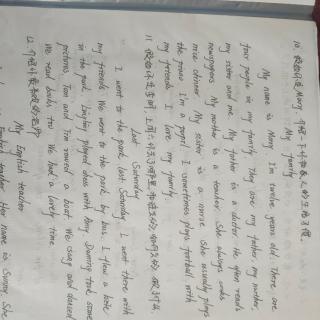 10. 假如你是Mary,介绍一下你和家人的生活习惯。
My family
My name is Mary I'm twelve years old. There are
four people in my family They are my father, my mother
my sister and me. My father is a doctor He often reads
newspapers My mother is a teacher She always cooks
nice dinner My sister is a nurse She usually plays
the piano I'm a pupil I sometimes plays football with
my friends I love my family
Last Saturday
I went to the park last Saturday I went there with
my friends We went to the park by bus I flew a kite
in the park. Lingling played chess with Amy Daming took some
pictures, Tom and Tim rowed a boat. We sang and danced
We read books too We had a lovely time
12.
My English teacher
teacher Her name is Sunny. She